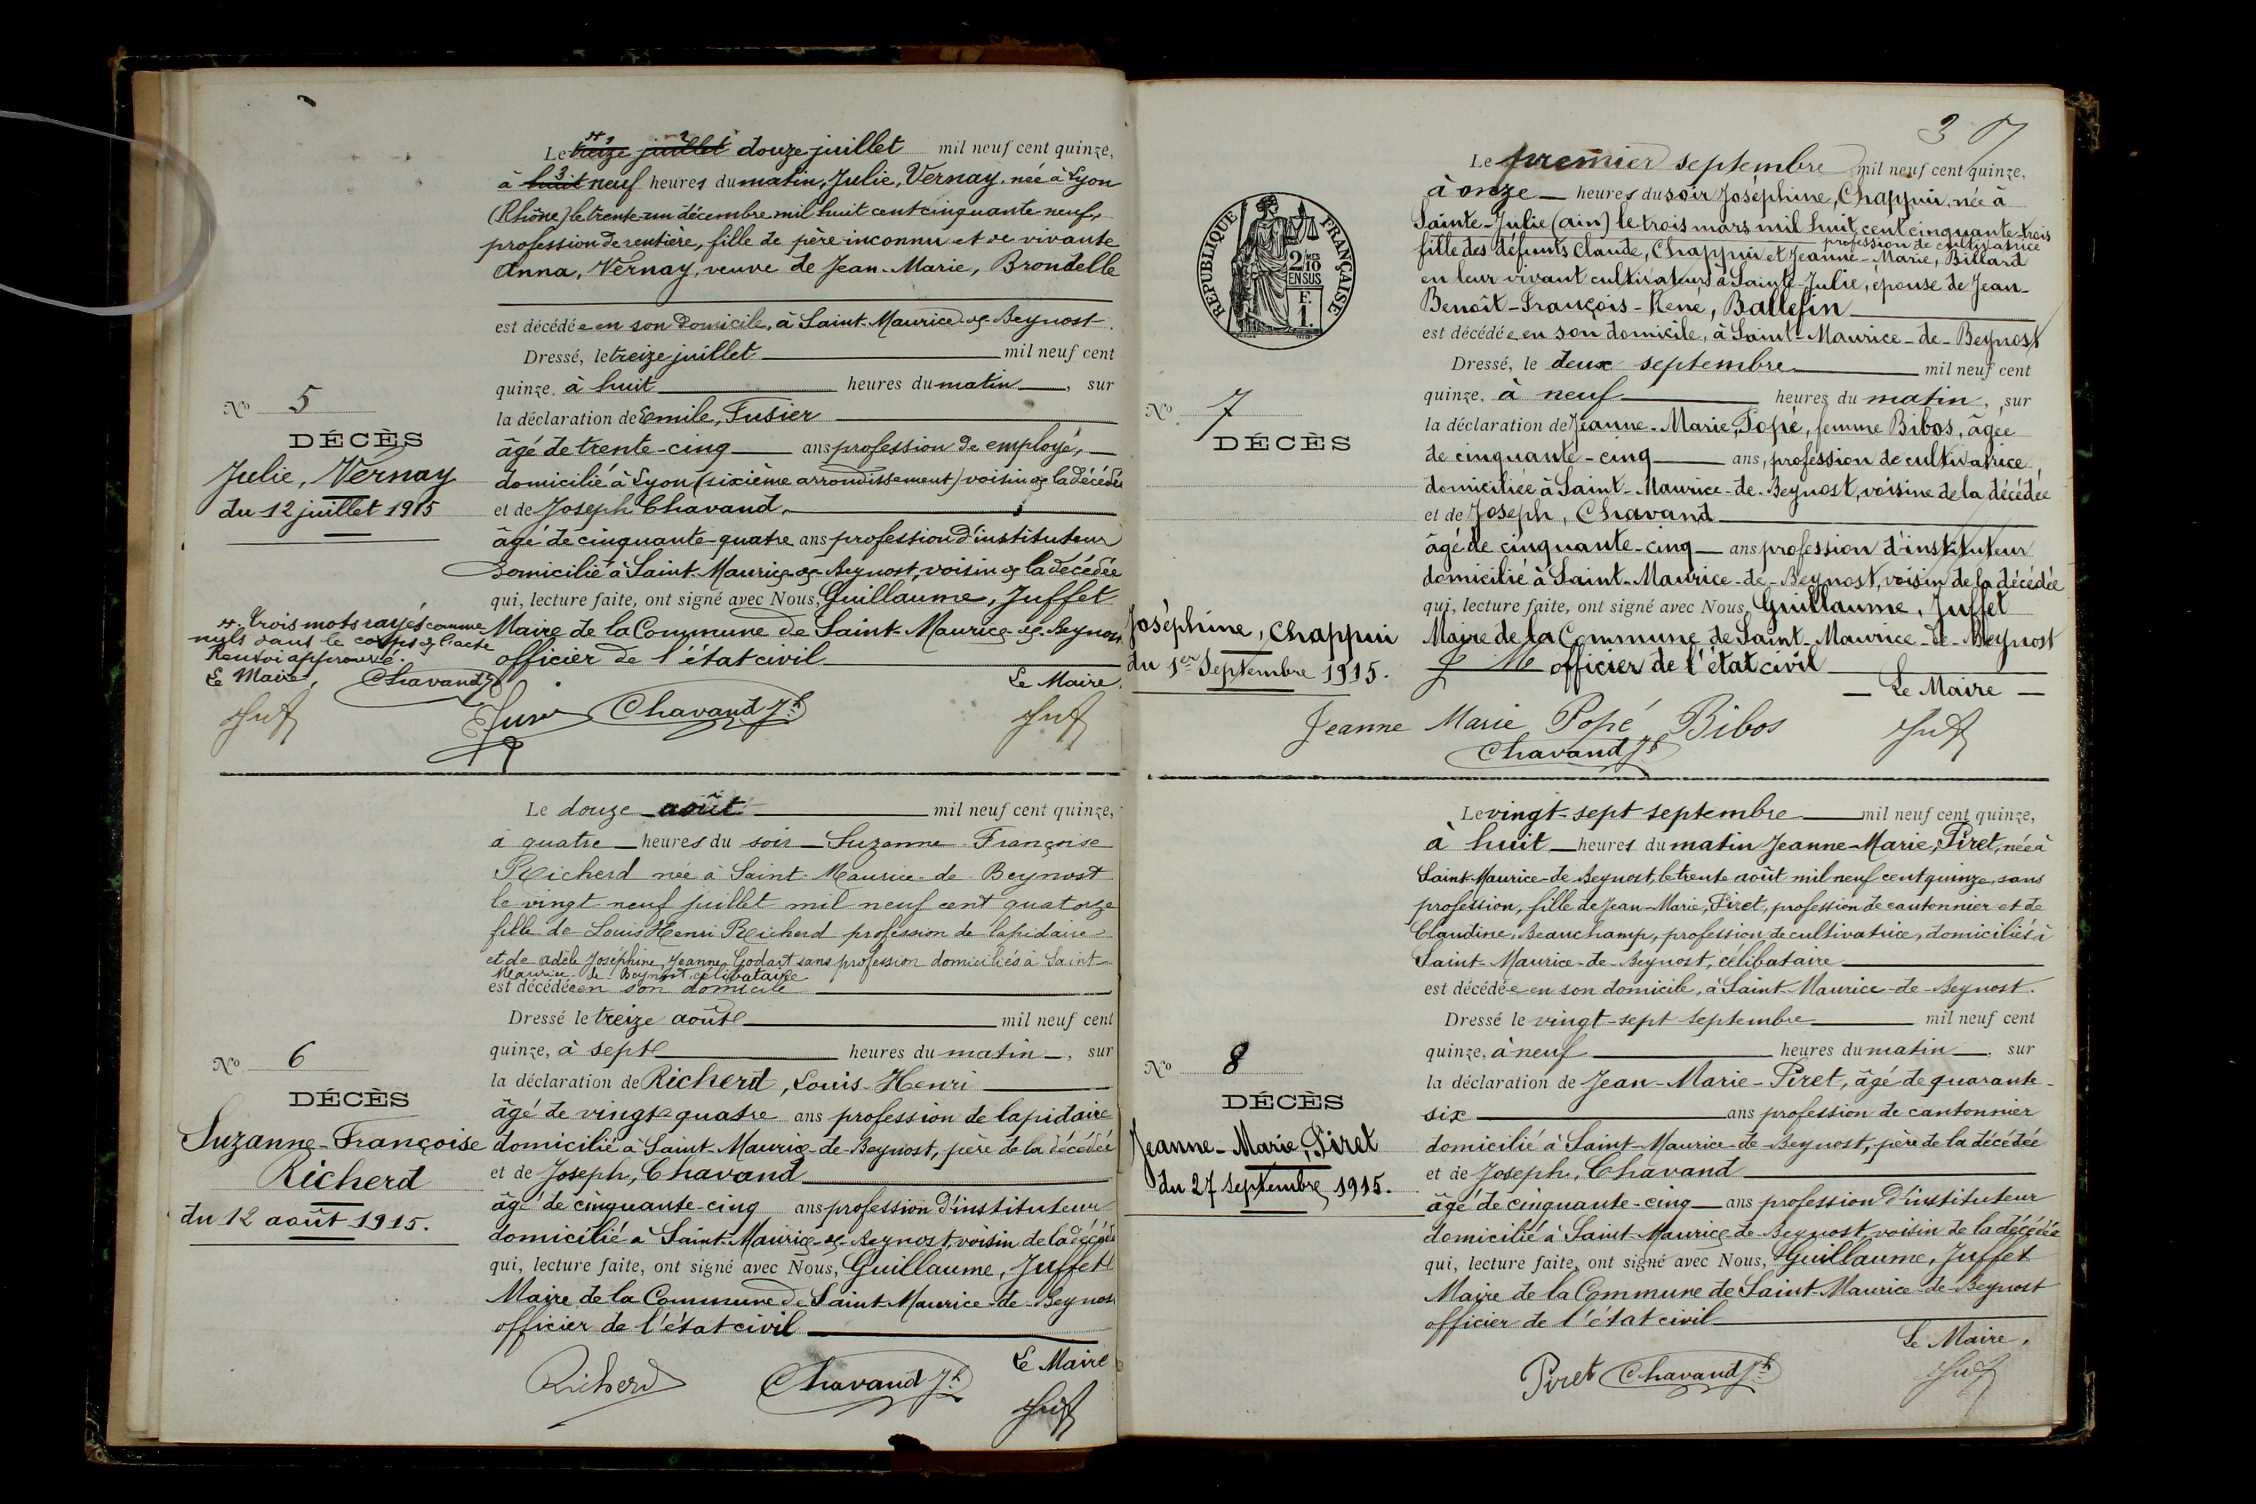 Le treize juillet douze juillet mil neuf cent quinze,
à huit neuf heures du matin, Julie, Vernay, née à Lyon
(Rhône) le trente-un décembre mil huit cent cinquante neuf,
profession de rentière, fille de père inconnu et de vivante
Anna, Vernay, veuve de Jean-Marie, Brondelle
est décédée en son domicile, à Saint-Maurice-de-Beynost.
Dressé, le treize juillet mil neuf cent
quinze, à huit heures du matin, sur
la déclaration de Emile, Fusier
âgé de trente-cinq ans profession de employé,
domicilié à Lyon (sixième arrondissement) voisin de la décédée
et de Joseph Chavand,
âgé de cinquante-quatre ans profession d'instituteur
domicilié à Saint-Maurice-de-Beynost, voisin de la décédée
qui, lecture faite, ont signé avec Nous, Guillaume, Juffet
Maire de la Commune de Saint-Maurice-de-Beynost
officier de l'état civil
Le Maire,
Chavand Jh
Juf
No 5
DÉCÈS
Julie, Vernay
du 12 juillet 1915
trois mots rayés comme
nuls dans le corps de l'acte
Renvoi approuvé.
Le Maire, Chavand Jh
Juf
Le douze août mil neuf cent quinze,
à quatre heures du soir Suzanne Françoise
Richerd née à Saint-Maurice-de-Beynost
le vingt neuf juillet mil neuf cent quatorze
fille de Louis Henri Richerd profession de lapidaire
et de Adèle Joséphine, Jeanne, Godart sans profession domiciliés à Saint
Maurice-de-Beynost, célibataire
est décédée en son domicile
Dressé le treize août mil neuf cent
quinze, à sept heures du matin, sur
la déclaration de Richerd, Louis-Henri
âgé de vingt-quatre ans profession de lapidaire
domicilié à Saint-Maurice-de-Beynost, père de la décédée
et de Joseph, Chavand
âgé de cinquante-cinq ans profession d'instituteur
domicilié à Saint-Maurice-de-Beynost, voisin de la décédée
qui, lecture faite, ont signé avec Nous, Guillaume, Juffet
Maire de la Commune de Saint-Maurice-de-Beynost
officier de l'état civil
Le Maire
Richerd Chavand Jh Juf
No 6
DÉCÈS
Suzanne-Françoise
Richerd
du 12 août 1915.
3
Le premier septembre mil neuf cent quinze,
à onze heures du soir Joséphine, Chappuis, née à
Sainte-Julie (ain) le trois mars mil huit cent cinquante-trois
profession de cultivatrice
fille des défunts Claude, Chappuis et Jeanne-Marie, Billard
en leur vivant cultivateurs à Sainte-Julie, épouse de Jean-
Benoît-François-René, Ballefin
est décédée en son domicile, à Saint-Maurice-de-Beynost
Dressé, le deux septembre mil neuf cent
quinze, à neuf heures du matin, sur
la déclaration de Jeanne-Marie, Popé, femme Bibos, âgée
de cinquante-cinq ans, profession de cultivatrice,
domiciliée à Saint-Maurice-de-Beynost, voisine de la décédée
et de Joseph, Chavand
âgé de cinquante-cinq ans profession d'instituteur
domicilié à Saint-Maurice-de-Beynost, voisin de la décédée
qui, lecture faite, ont signé avec Nous, Guillaume, Juffet
Maire de la Commune de Saint-Maurice-de-Beynost
officier de l'état civil
Le Maire
Jeanne Marie Popé Bibos Juf
Chavand Jh
RÉPUBLIQUE FRANÇAISE
2/10MES
EN SUS
F.
1.
No 7
DÉCÈS
Joséphine, Chappuis
du 1er Septembre 1915.
Le vingt-sept septembre mil neuf cent quinze,
à huit heures du matin Jeanne-Marie, Piret, née à
Saint-Maurice-de-Beynost, le trente août mil neuf cent quinze, sans
profession, fille de Jean-Marie, Piret, profession de cantonnier et de
Claudine, Beauchamp, profession de cultivatrice, domiciliés à
Saint-Maurice-de-Beynost, célibataire
est décédée en son domicile, à Saint-Maurice-de-Beynost.
Dressé le vingt-sept septembre mil neuf cent
quinze, à neuf heures du matin, sur
la déclaration de Jean-Marie-Piret, âgé de quarante-
six ans profession de cantonnier
domicilié à Saint-Maurice-de-Beynost, père de la décédée
et de Joseph, Chavand
âgé de cinquante-cinq ans profession d'instituteur
domicilié à Saint-Maurice de Beynost, voisin de la décédée
qui, lecture faite, ont signé avec Nous, Guillaume, Juffet
Maire de la Commune de Saint-Maurice-de-Beynost
officier de l'état civil
Le Maire,
Piret Chavand Jh Juf
No 8
DÉCÈS
Jeanne-Marie, Piret
du 27 septembre 1915.